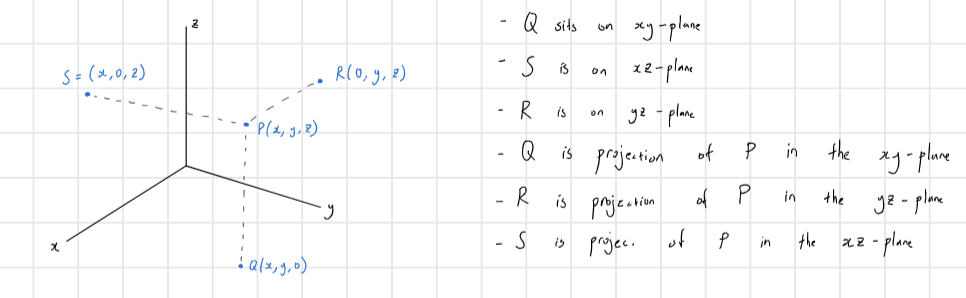 z
S = (x, 0, z)
R(0, y, z)
P(x, y, z)
y
x
Q(x, y, 0)
- Q sits on xy-plane
- S is on xz-plane
- R is on yz-plane
- Q is projection of P in the xy-plane
- R is projection of P in the yz-plane
- S is projec. of P in the xz-plane